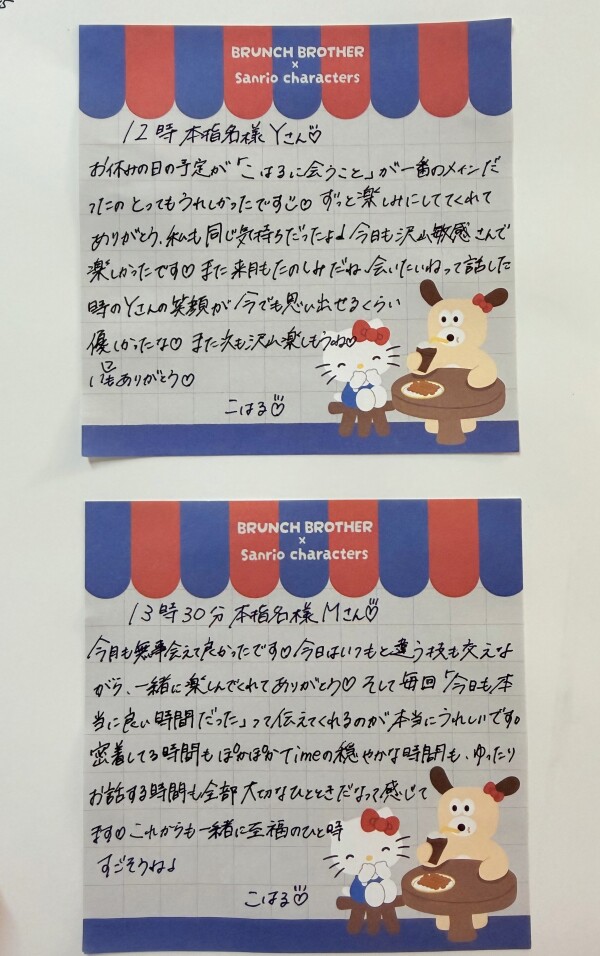 BRUNCH BROTHER
×
Sanrio characters
12時 本指名様 Yさん♡
お休みの日の予定が「こはるに会うこと」が一番のメインだ
ったの とってもうれしかったです♡ ずっと楽しみにしててくれて
ありがとう、私も同じ気持ちだったよ♪ 今日も沢山敏感さんで
楽しかったです♡ また来月もたのしみだね 会いたいねって話した
時のYさんの笑顔が 今でも思い出せるくらい
優しかったな♡ また次も沢山楽しもうね♡
いつもありがとう♡
こはる♡
BRUNCH BROTHER
×
Sanrio characters
13時30分 本指名様 Mさん♡
今月も無事会えて良かったです♡ 今日はいつもと違う技も交えな
がら、一緒に楽しんでくれてありがとう♡ そして毎回「今日も本
当に良い時間だった」って伝えてくれるのが本当にうれしいです。
密着してる時間もぽかぽかTimeの穏やかな時間も、ゆったり
お話する時間も全部大切なひとときだなって感じて
ます♡ これからも一緒に至福のひと時
すごそうねよ
こはる♡